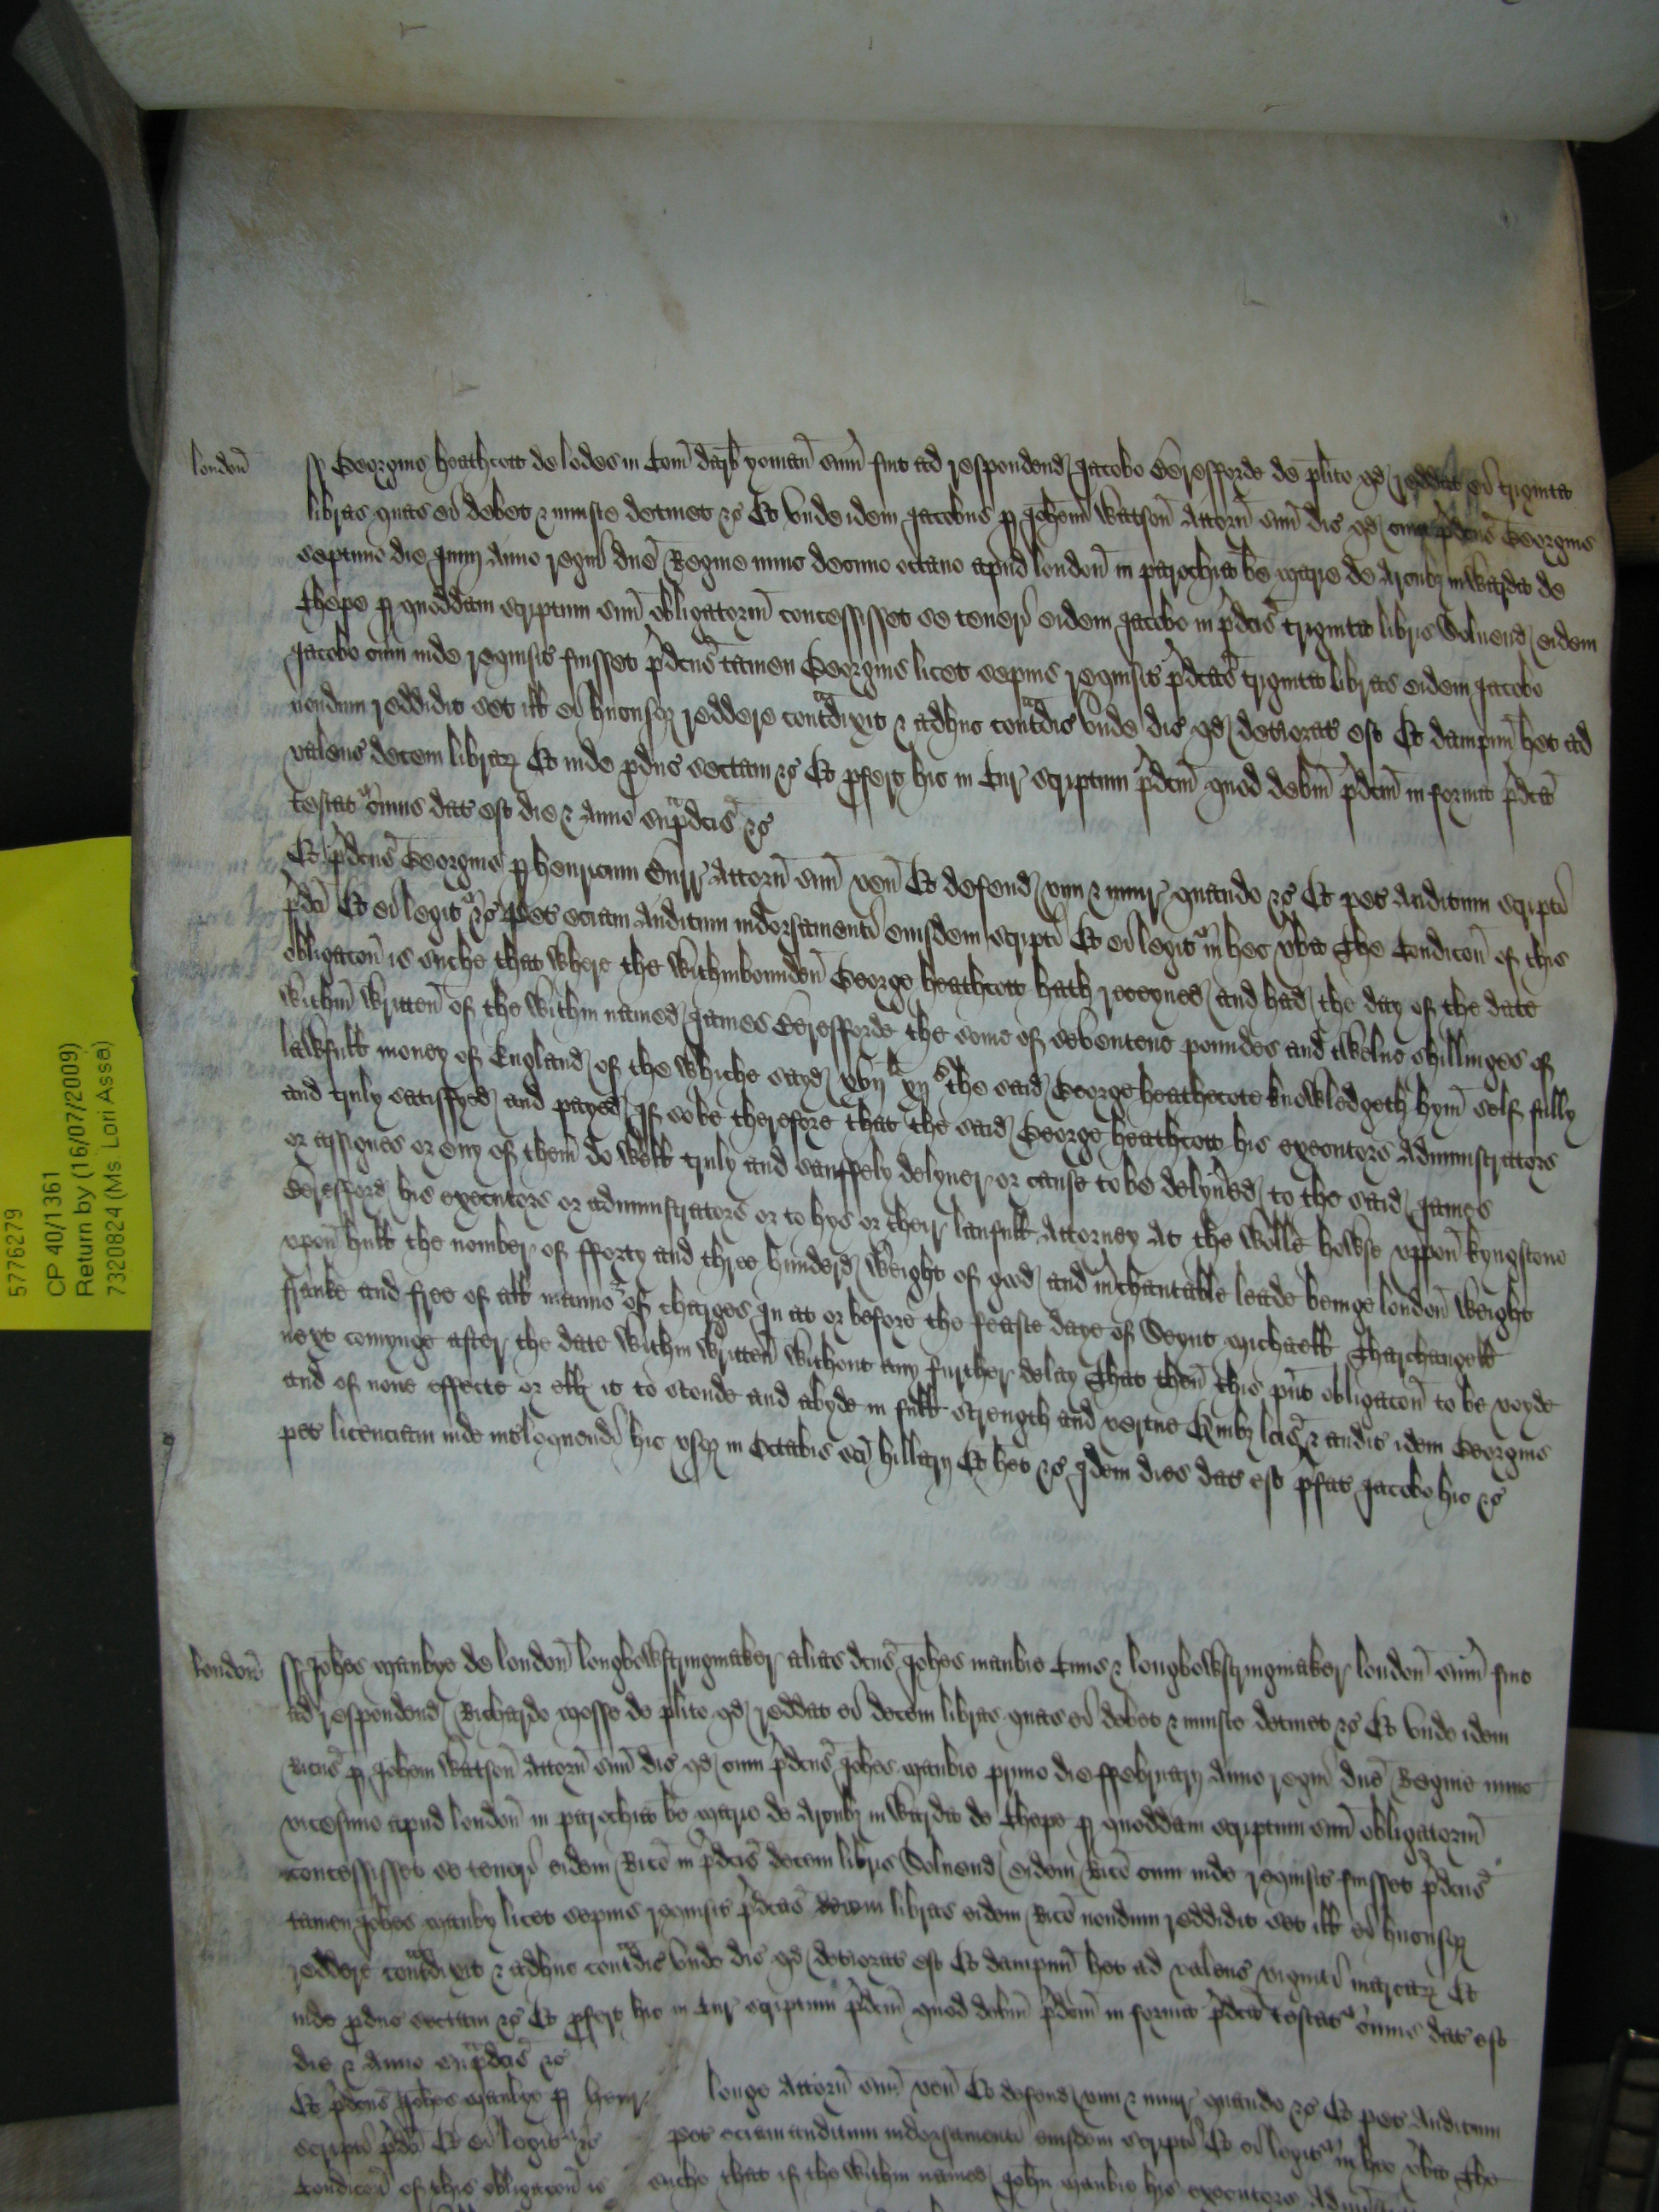 5776279
CP 40/1361
Return by (16/07/2009)
73208824 (Ms. Lori Assa)
london̄ ss Georgius heathcott de lodes in Com̄ darb̄ yoman̄ sum̄ fuit ad respondend Jacobo Beresforde de pl̄ito qd reddat ei triginta
libras quas ei debet & iniuste detinet &c Et unde idem Jacobus p Joh̄em Watson̄ Attorn̄ suū dic qd cum p̄dcus Georgius
septimo die Junij Anno regni dn̄e Regine nunc decimo octavo apud london̄ in parochia b̄e marie de Arcubȝ in Warda de
Chepe p quoddam scriptum suū obligatoriū concessisset se teneri eidem Jacobo in p̄dcis triginta libris Solvend eidem
Jacobo cum inde requisit fuisset p̄dcus tamen Georgius licet sepius requisit p̄dcas triginta libras eidem Jacobo
nondum reddidit set ill ei hucusqȝ reddere contradixit & adhuc contradic unde dic qd deteriorat est Et dampnū het ad
valenc decem librarȝ Et inde producc sectam &c Et profert hic in Cur scriptum p̄dcm̄ quod debm̄ p̄dcm̄ in forma p̄dca
testatr cuius dat est die & Anno sup̄dcis &c
Et p̄dcus Georgius p henricum Attorn̄ suū ven̄ Et defend vim & iniur quando &c Et pet Auditum scripti
p̄dci Et ei legitr &c Pet eciam Auditum indorsamenti eiusdem scripti Et ei legitr in hec v̄ba The Condicon̄ of this
obligacon̄ is suche that where the withinbounden̄ George heathcott hath receyued and had the day of the date
within̄ written̄ of the within named James Beresforde the some of seventene poundes and twelve shillinges of
lawfull money of England of the whiche sayd xvij l xij s the said George heathecote knowledgeth hym̄ self fully
and truly satisfyed and payed If so be therefore that the said George heathcott his executors Administrators
or assignes or eny of them̄ do well truly and sauffely delyuer or cause to be delyu̅ed to the said James
Beresford his executors or administrators or to hys or their laufull Attorney At the Wolle howse vppon̄ kyngstone
vpon̄ hull the nomber of fforty and three hunderd Weight of good and m̄chantable leade beinge london̄ weight
franke and free of all manner of charges In at or before the feaste daye of Seynt michaell Tharchangell
next comynge after the date within written̄ without any further delay That then̄ this p̄nt obligacon̄ to be voyde
and of none effecte or ellȝ it to stonde and abyde in full strength and vertue Quibȝ lc̄is & audit idem Georgius
pet licenciam inde int̄loquendi hic usqȝ in Octabis sc̄i hillarij Et het &c Idem dies dat est p̄fat Jacobo hic &c
london̄ ss Joh̄es manbye de london̄ longbowstringmaker alias dcus Joh̄es manbie Civis & longbowstringmaker london̄ sum̄ fuit
ad respondend Richardo mosse de pl̄ito qd reddat ei decem libras quas ei debet & iniuste detinet &c Et unde idem
Ricus p Joh̄em Watson̄ Attorn̄ suū dic qd cum p̄dcus Joh̄es manbie primo die ffebruarij Anno regni dn̄e Regine nunc
vicesimo apud london̄ in parochia b̄e marie de Arcubȝ in Warda de Chepe p quoddam scriptum suū obligatoriū
concessisset se teneri eidem Rico in p̄dcis decem libris Solvend eidem Rico cum inde requisit fuisset p̄dcus
tamen Joh̄es manby licet sepius requisit p̄dcas decem libras eidem Rico nondum reddidit set ill ei hucusqȝ
reddere contradixit & adhuc contradic unde dic qd deteriorat est Et dampnū het ad valenc viginti marcarȝ Et
inde producc sectam &c Et profert hic in Cur scriptum p̄dcm̄ quod debm̄ p̄dcm̄ in forma p̄dca testatr cuius dat est
die & Anno sup̄dcis &c
Et p̄dcus Joh̄es manbye p henr longe Attorn̄ suū ven̄ Et defend vim & iniur quando &c Et pet Auditum
scripti p̄dci Et ei legitr &c pet eciam auditum indorsamenti eiusdem scripti Et ei legitr in hec v̄ba The
Condicon̄ of this obligacon̄ is suche that if the within named John manbie his executors